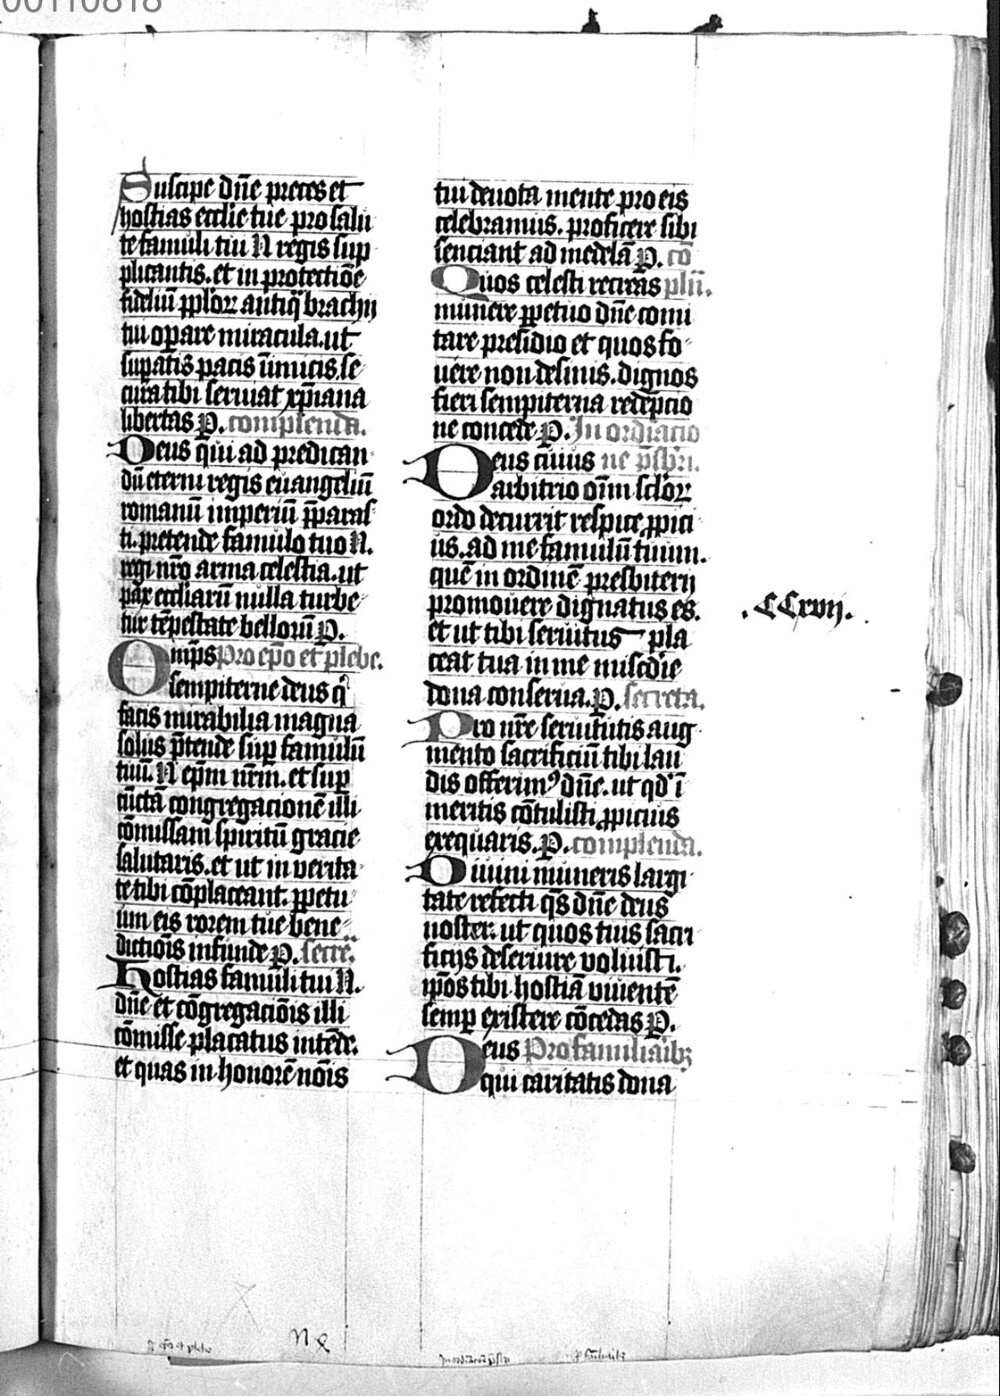 00110818
Suscipe dn̄e preces et
hostias ecclie tue pro salu
te famuli tui N regis sup
plicantis. et in protectiōe
fideliū pploꝝ antiq̄ brachij
tui opare miracula. ut
supatis pacis inimicis. se
cura tibi seruiat xp̄iana
libertas P. complenda.
Deus qui ad predican
dū eterni regis euangeliū
romanū imperiū p̄paras
ti. pretende famulo tuo N.
regi nr̄o arma celestia. ut
pax eccliarū nulla turbe
tur tēpestate belloꝝ P.
Om̄ps Pro ep̄o et plebe.
sempiterne deus q̄
facis mirabilia magna
solus p̄tende sup famulū
tuū. N ep̄m nr̄m. et sup
cūctā congregacionē illi
cōmissam spiritū gracie
salutaris. et ut in verita
te tibi cōplaceant. ꝑpetu
um eis rorem tue bene
dictiōis infunde P. secre.
Hostias famuli tui N.
dn̄e et cōgregaciōis illi
cōmisse placatus intēde.
et quas in honorē nōis
tui deuota mente pro eis
celebramus. proficere sibi
senciant ad medelā P. cō
Quos celesti recreas plū.
munere ꝑpetuo dn̄e comi
tare presidio et quos fo
uere non desinis. dignos
fieri sempiterna redēpcio
ne concede P. In ordīacio
Deus cuius ne p̄sbr̄i.
arbitrio om̄i scl'oꝝ
ordo decurrit respice ꝓpici
us. ad me famulū tuum.
quē in ordinē presbiterij
promouere dignatus es.
et ut tibi seruitus pla
ceat tua in me mīscd'ie
dona conserua. P. secreta.
Pro nr̄e seruitutis aug
mento sacrificiū tibi lau
dis offerimꝰ dn̄e. ut qd' ī
meritis cōtulisti ꝓpicius
exequaris. P. complenda.
Diuini muneris largi
tate refecti qs̄ dn̄e deus
noster. ut quos tuis sacri
ficijs deseruire voluisti.
ip̄os tibi hostiā viuentē
semp existere cōcedas P.
Deus Pro familiaribꝫ
qui caritatis dona
.CCxvij.